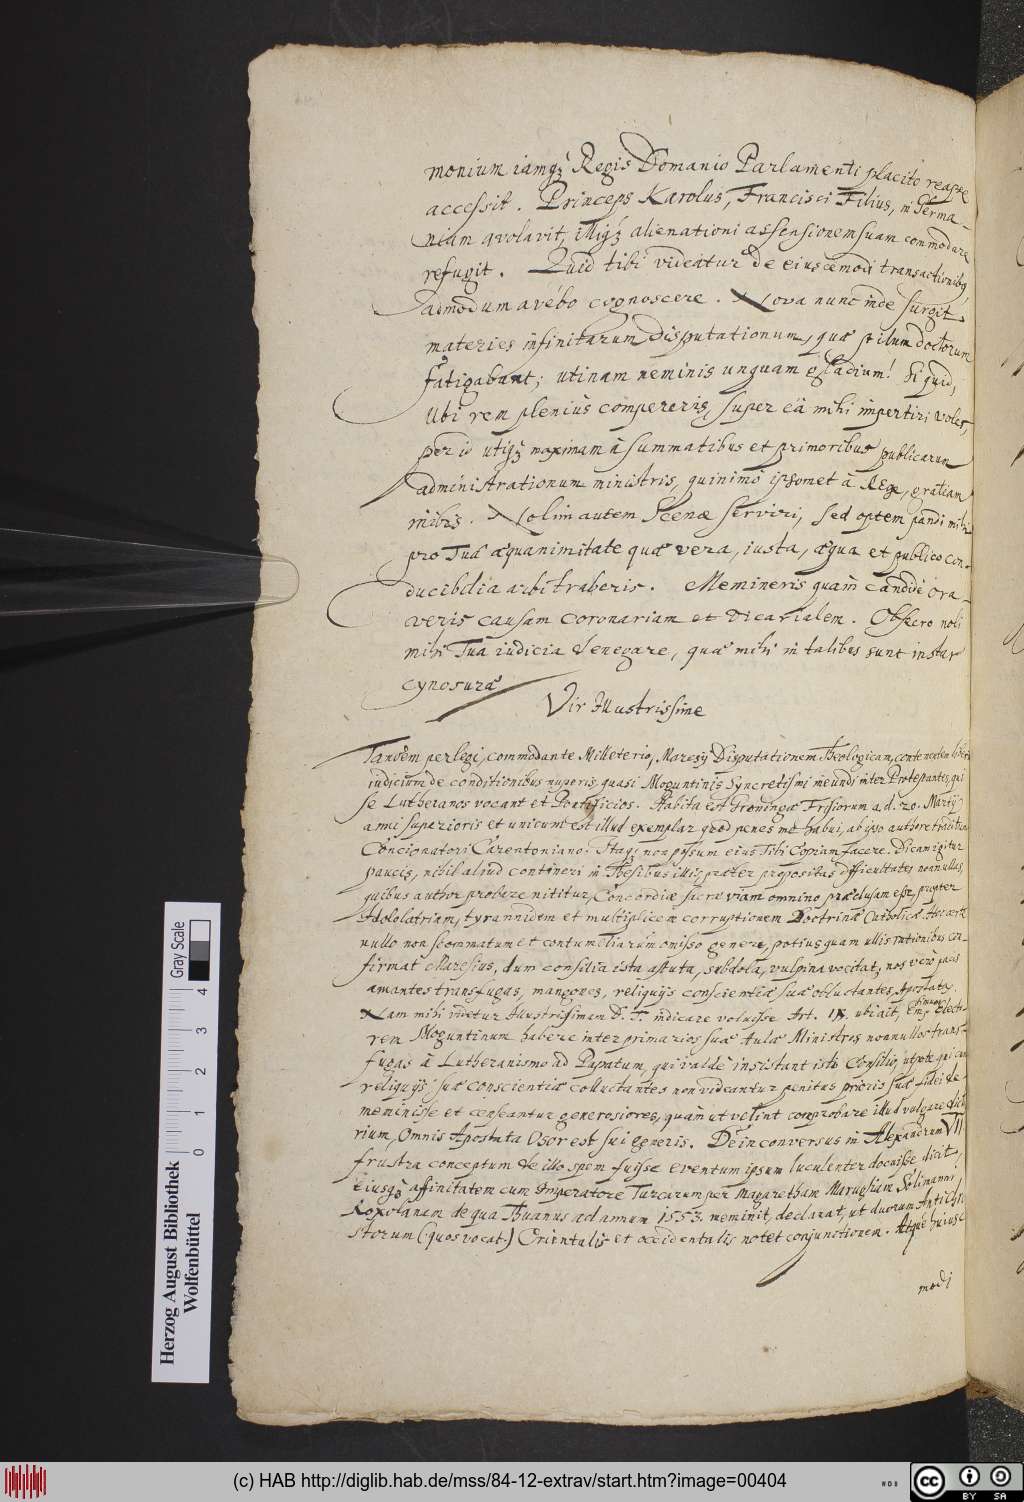 monium iamq́ꝫ Regis Domanio Parlamenti placito reapse
accessit. Princeps Karolus, Francisci Filius, in Germa-
niam avolavit, illiq́ꝫ alienationi assensionem suam commodare
refugit. Quid tibi videatur de eiuscemodi transactionibꝫ,
admodum avebo cognoscere. Nova nunc inde surgit
materies infinitarum disputationum, quæ stilum doctorum
fatigabunt; utinam neminis unquam gladium! Si quid,
Ubi rem plenius compereris, super eâ mihi impertiri voles,
per id utiqꝫ maximam à summatibus et primoribus publicarum
administrationum ministris, quinimò ipsomet à Rege, gratiam
inibis. Nolim autem Scenæ serviri, sed optem pandi mihi
pro Tuâ æquanimitate quæ vera, iusta, æqua et publico con-
ducibilia arbitraberis. Memineris quàm candidè ora-
veris causam coronariam et vicarialem. Obsecro noli
mihi Tua iudicia denegare, quæ mihi in talibus sunt instar
cynosuræ
Vir Illustrissime
Tandem perlegi, commodante Milleterio, Maresij Disputationem Theologicam, continentem liberum
iudicium de conditionibus nuperis, quasi Moguntinis Syncretismi ineundi inter Protestantes, qui
se Lutheranos vocant et Pontificios. Habita est Groningæ Frisiorum a.d. 20. Martij
anni superioris et unicum est illud exemplar quod penes me habui, ab ipso authore traditum
Concionatori Carentoniano. Itaqꝫ non possum eius Tibi Copiam facere. Dicam igitur
paucis, nihil aliud contineri in Thesibus illis præter propositas difficultates nonnullas,
quibus author probare nititur, Concordiæ sacræ viam omnino præclusam esse, propter
Idololatriam, tyrannidem et multiplicem corruptionem Doctrinæ Catholicæ. Hoc arte
nullo non scommatum et contumeliarum omisso genere, potius quam ullis rationibus con-
firmat Maresius, dum consilia ista astuta, subdola, vulpina vocitat, nos verò pacis
amantes transfugas, mangones, reliquijs conscientiæ suæ obluctantes, Apostatas.
Nam mihi videtur Illustrissimam D. T. indicare voluisse Art. IX. ubi ait, Eminentissimum Electo-
rem Moguntinum habere inter primarios suæ Aulæ Ministros nonnullos trans-
fugas à Lutheranismo ad Papatum, qui valdè insistant isti Consilio, utpote qui cum
reliquijs suæ conscientiæ colluctantes non videantur penitus prioris suæ fidei de-
meminisse et censeantur generosiores, quàm ut velint comprobare illud vulgare dicte-
rium, Omnis Apostata Osor est sui generis. Dein conversus in Alexandrum VII
frustra conceptum de illo spem fuisse eventum ipsum luculenter docuisse dicit,
Eiusqꝫ affinitatem cum Imperatore Turcarum per Margaretham Marsiliam Solimanni
Roxolanam de qua Thuanus ad annum 1553. meminit, declarat, ut duorum Antichri-
storum (quos vocat) Orientalis et occidentalis notet conjunctionem. Atque huius-
modi
Herzog August Bibliothek
Wolfenbüttel
0 1 2 3 4
Gray Scale
(c) HAB http://diglib.hab.de/mss/84-12-extrav/start.htm?image=00404
cc BY SA